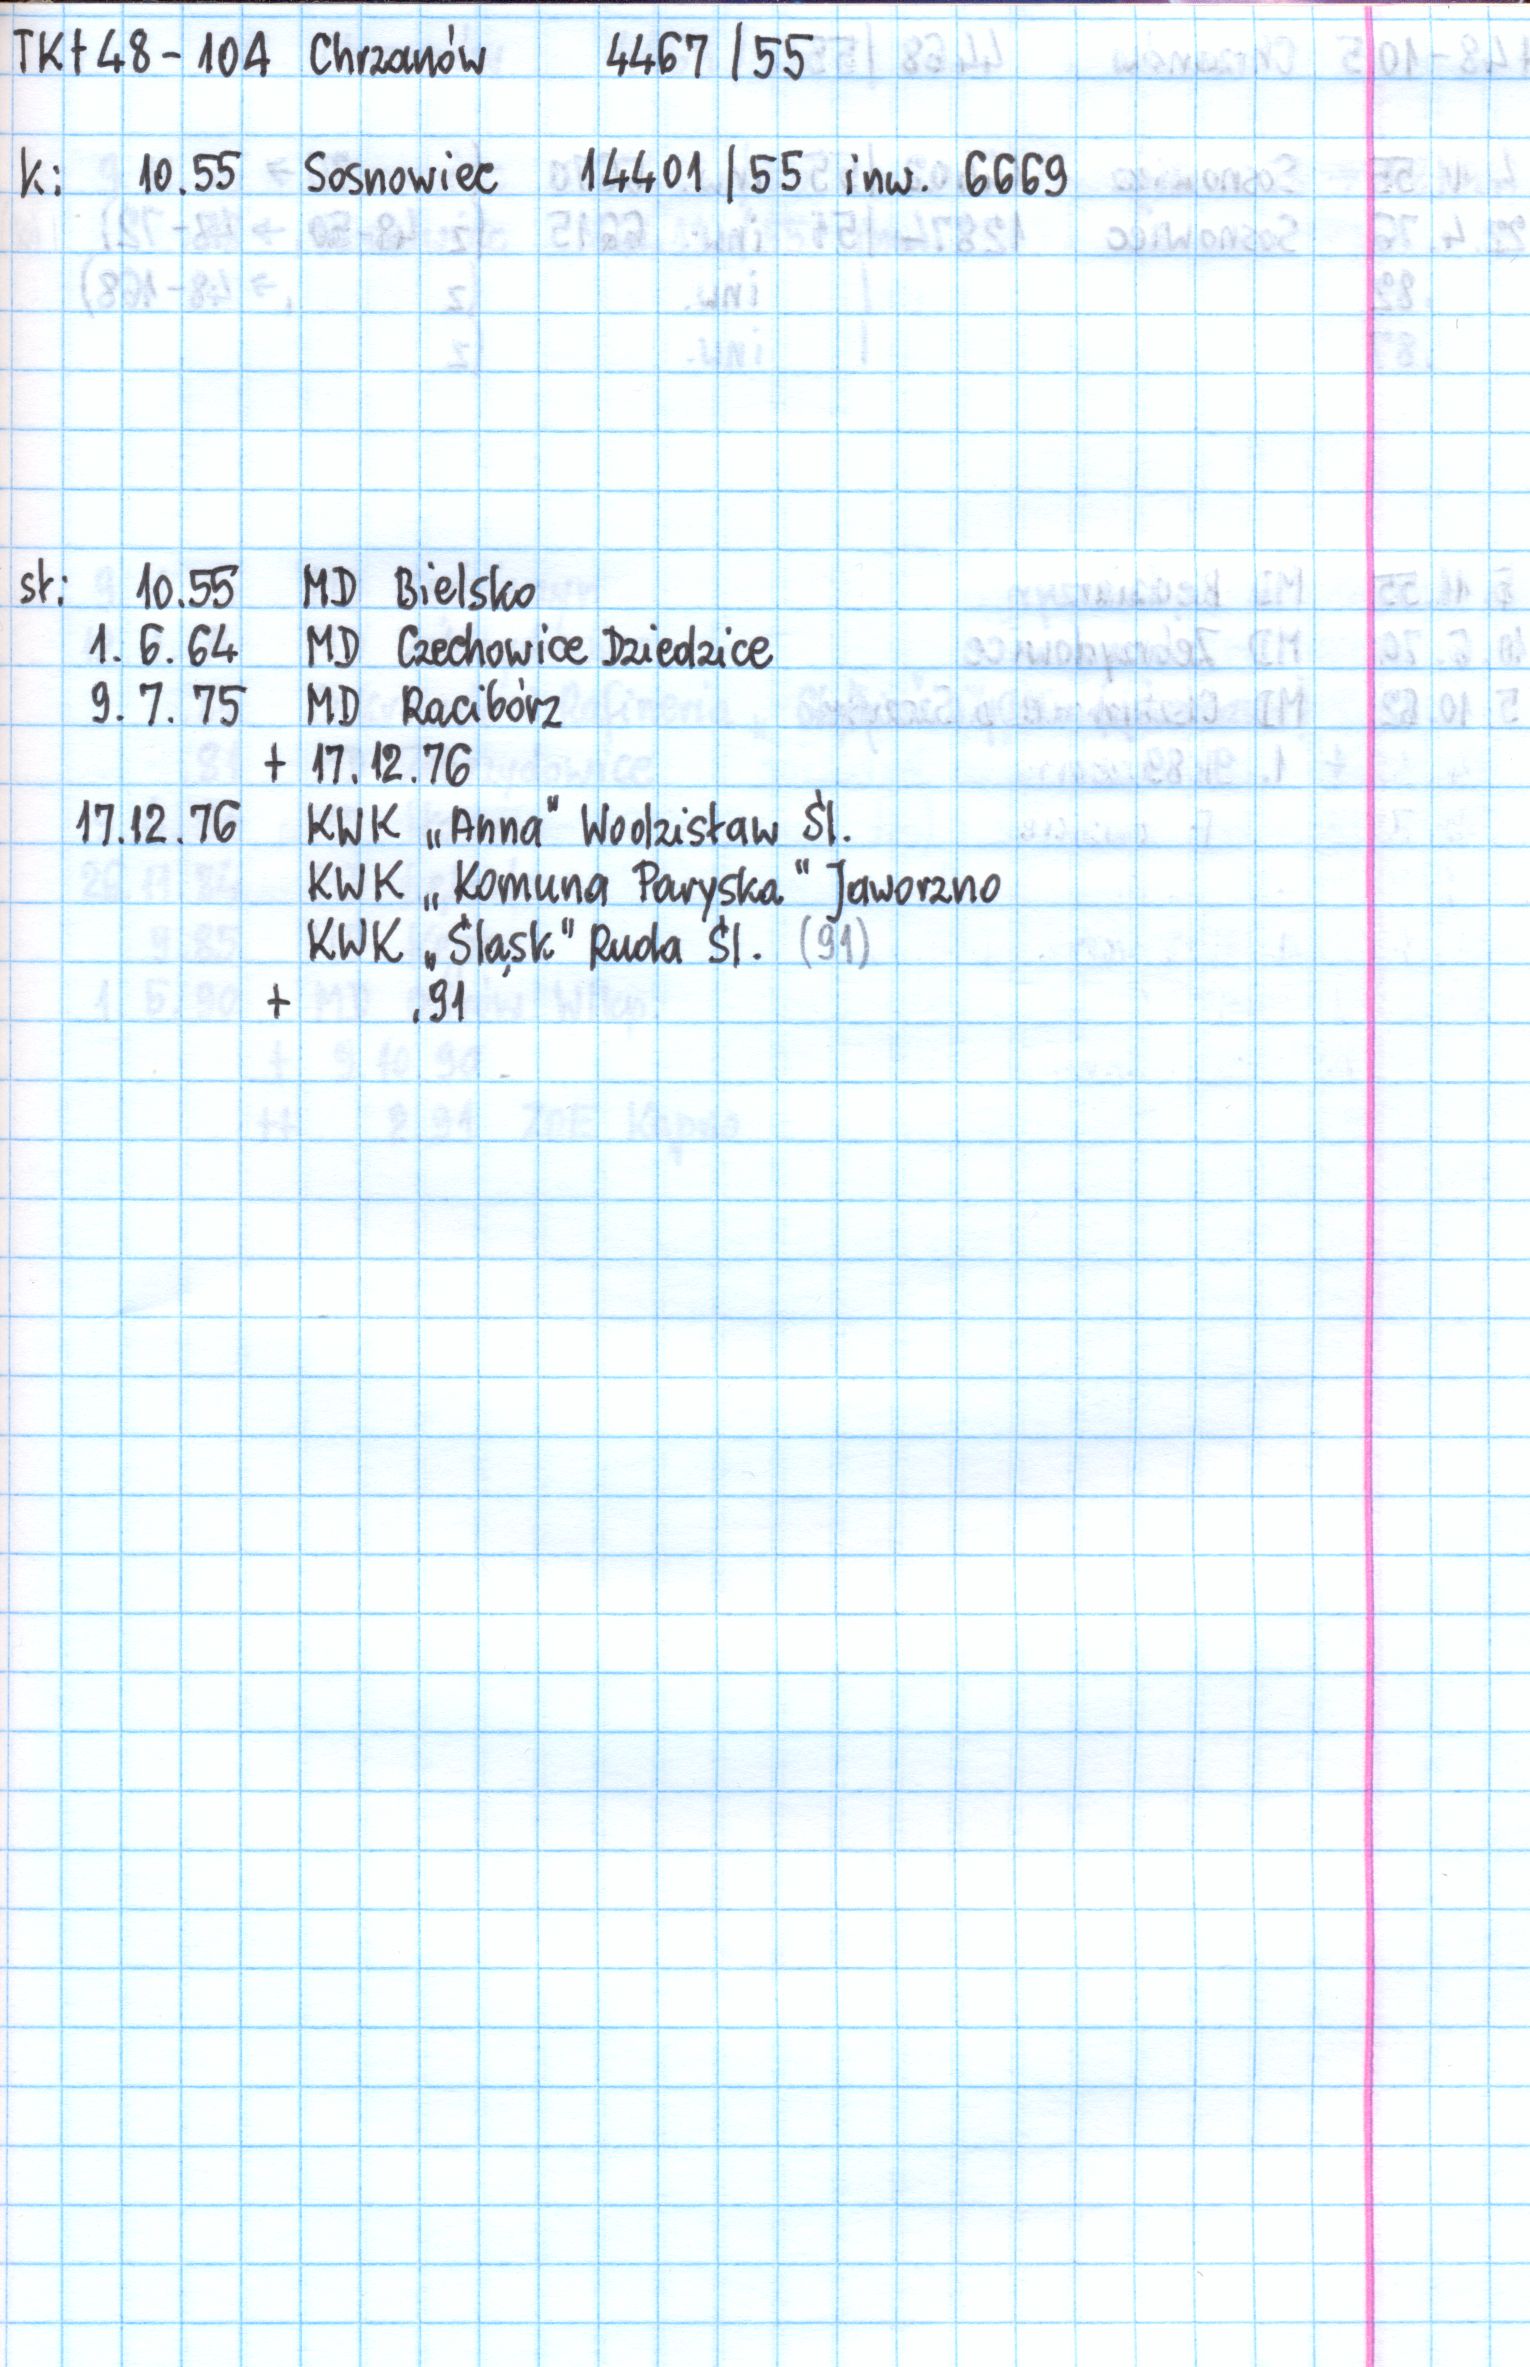 TKt48-104 Chrzanów 4467/55
k: 10.55 Sosnowiec 14401/55 inw. 6669
st: 10.55 MD Bielsko
1.6.64 MD Czechowice Dziedzice
9.7.75 MD Racibórz
+ 17.12.76
17.12.76 KWK „Anna" Wodzisław Śl.
KWK „Komuna Paryska" Jaworzno
KWK „Śląsk" Ruda Śl. (91)
+ .91